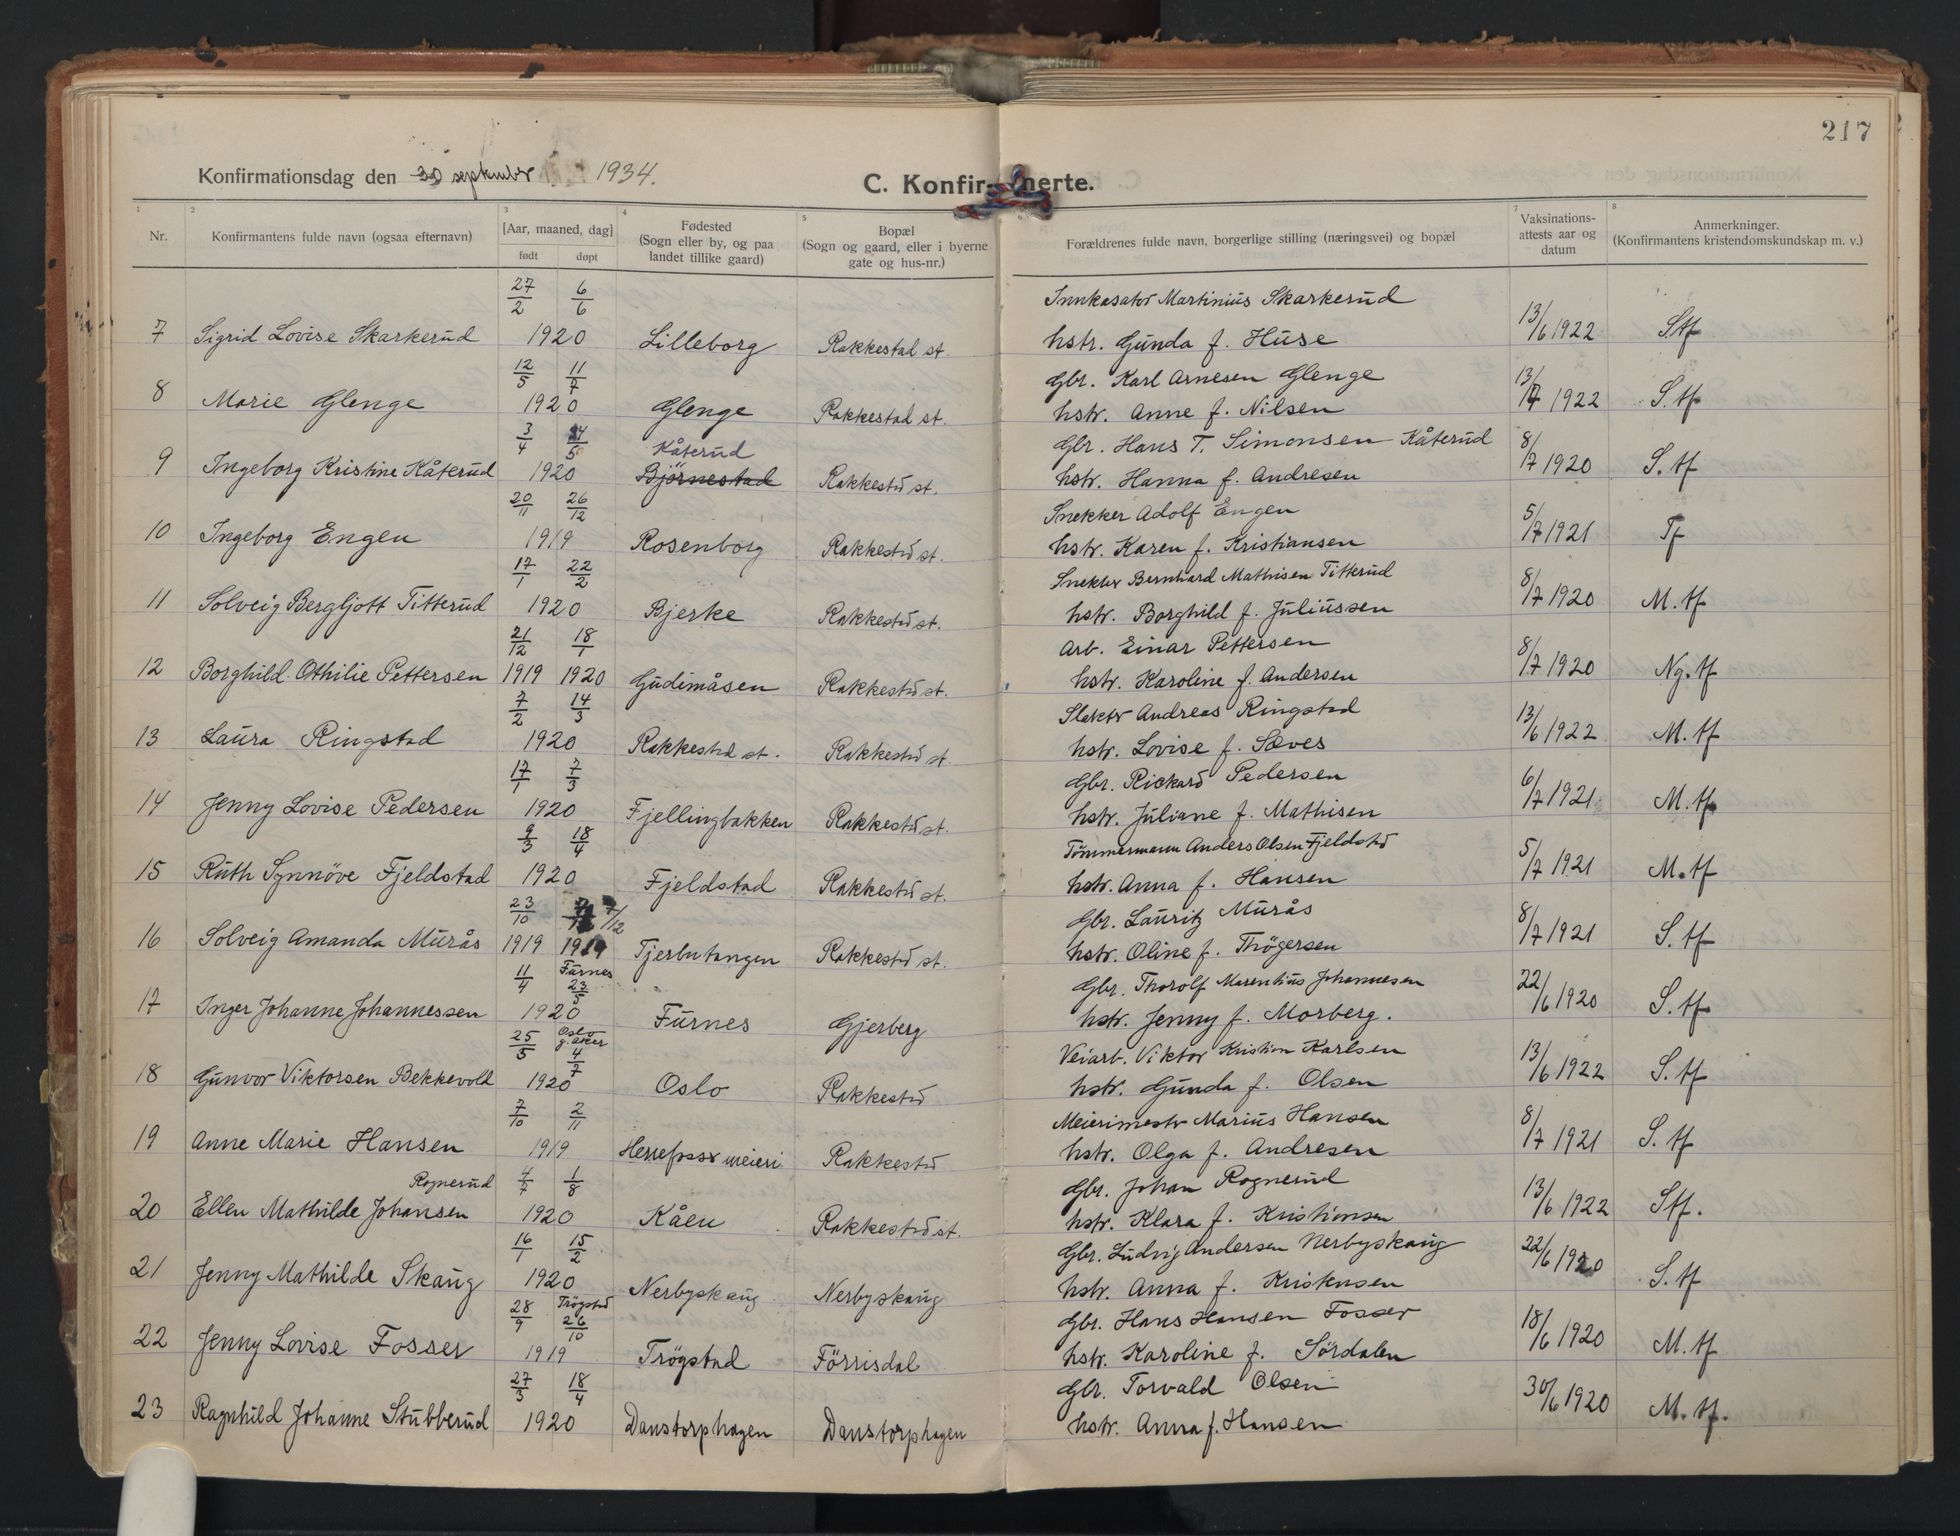 217
Konfirmationsdag den 30 september 1934.
C. Konfir- merte.
1 2 3 4 5 6 7 8
Nr. Konfirmantens fulde navn (ogsaa efternavn) [Aar, maaned, dag] født døpt Fødested (Sogn eller by, og paa landet tillike gaard) Bopæl (Sogn og gaard, eller i byerne gate og hus-nr.) Forældrenes fulde navn, borgerlige stilling (næringsvei) og bopæl Vaksinations-attests aar og datum Anmerkninger. (Konfirmantens kristendomskundskap m. v.)
27/2 6/6 Innkasator Martinius Skarkerud
7 Sigrid Lovise Skarkerud 1920 Lilleborg Rakkestad st. hstr. Gunda f. Huse 13/6 1922 S.tf
12/5 11/7 Gbr. Karl Arnesen Glenge
8 Marie Glenge 1920 Glenge Rakkestad st. hstr. Anne f. Nilsen 13/7 1922 S.tf
3/4 24/5 Kåterud Gbr. Hans T. Simonsen Kåterud
9 Ingeborg Kristine Kåterud 1920 Björnestad Rakkestd st. hstr. Hanna f. Andresen 8/7 1920 S.tf
20/11 26/12 Snekker Adolf Engen
10 Ingeborg Engen 1919 Rosenborg Rakkestd st. hstr. Karen f. Kristiansen 5/7 1921 Tf
17/1 22/2 Snekker Bernhard Mathisen Titterud
11 Solveig Bergljott Titterud 1920 Bjerke Rakkestd st. hstr. Borghild f. Juliussen 8/7 1920 M.tf
21/12 18/1 Arb. Einar Pettersen
12 Borghild Othilie Pettersen 1919 1920 Gudimåsen Rakkestd st. hstr. Karoline f. Andersen 8/7 1920 Ng.tf
7/2 14/3 Slakter Andreas Ringstad
13 Laura Ringstad 1920 Rakkestd st. Rakkestd st. hstr. Lovise f. Sæves 13/6 1922 M.tf
17/1 7/3 Gbr. Rickard Pedersen
14 Jenny Lovise Pedersen 1920 Fjellingbakken Rakkestd st. hstr. Juliane f. Mathisen 6/7 1921 M.tf
9/3 18/4 Tömmermann Anders Olsen Fjeldstd
15 Ruth Synnöve Fjeldstad 1920 Fjeldstad Rakkestd st. hstr. Anna f. Hansen 5/7 1921 M.tf
23/10 7/12 Gbr. Lauritz Murås
16 Solveig Amanda Murås 1919 1919 Tjerbutangen Rakkestd st. hstr. Oline f. Thögersen 8/7 1921 S.tf
11/4 Furnes 23/5 Gbr. Thorolf Marentius Johannesen
17 Inger Johanne Johannessen 1920 Furnes Gjerberg hstr. Jenny f. Morberg. 22/6 1920 S.tf
25/5 Oslo g. aker 4/7 Veiarb. Viktor Kristian Karlsen
18 Gunvor Viktorsen Bekkevold 1920 Oslo Rakkestd hstr. Gunda f. Olsen 13/6 1922 S.tf
7/10 2/11 Meierimestr Marius Hansen
19 Anne Marie Hansen 1919 Herrefosser meieri Rakkestd hstr. Olga f. Andresen 8/7 1921 S.tf
Rognerud 4/7 1/8 Gbr. Johan Rognerud
20 Ellen Mathilde Johansen 1920 Kåen Rakkestd st. hstr. Klara f. Kristiansen 13/6 1922 S.tf.
16/1 15/2 Gbr. Ludvig Andersen Nerbyskaug
21 Jenny Mathilde Skaug 1920 Nerbyskaug Nerbyskaug hstr. Anna f. Kristensen 22/6 1920 S.tf
28/9 Trögstd 26/10 Gbr. Hans Hansen Fosser
22 Jenny Lovise Fosser 1919 Trögstad Förrisdal hstr. Karoline f. Sördalen 18/6 1920 M.tf
27/3 18/4 Gbr. Torvald Olsen
23 Ragnhild Johanne Stubberud 1920 Danstorphagen Danstorphagen hstr. Anna f. Hansen 30/6 1920 M.tf.